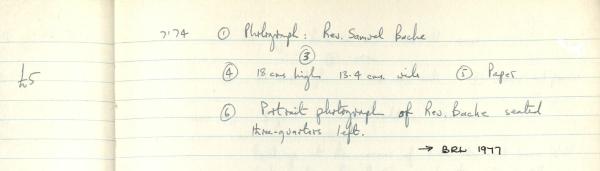 7.74 ① Photograph: Rev. Samuel Bache
③
£5 ④ 18 cms high 13.4 cms. wide ⑤ Paper
⑥ Portrait photograph of Rev. Bache seated
three-quarters left.
→ BRL 1977